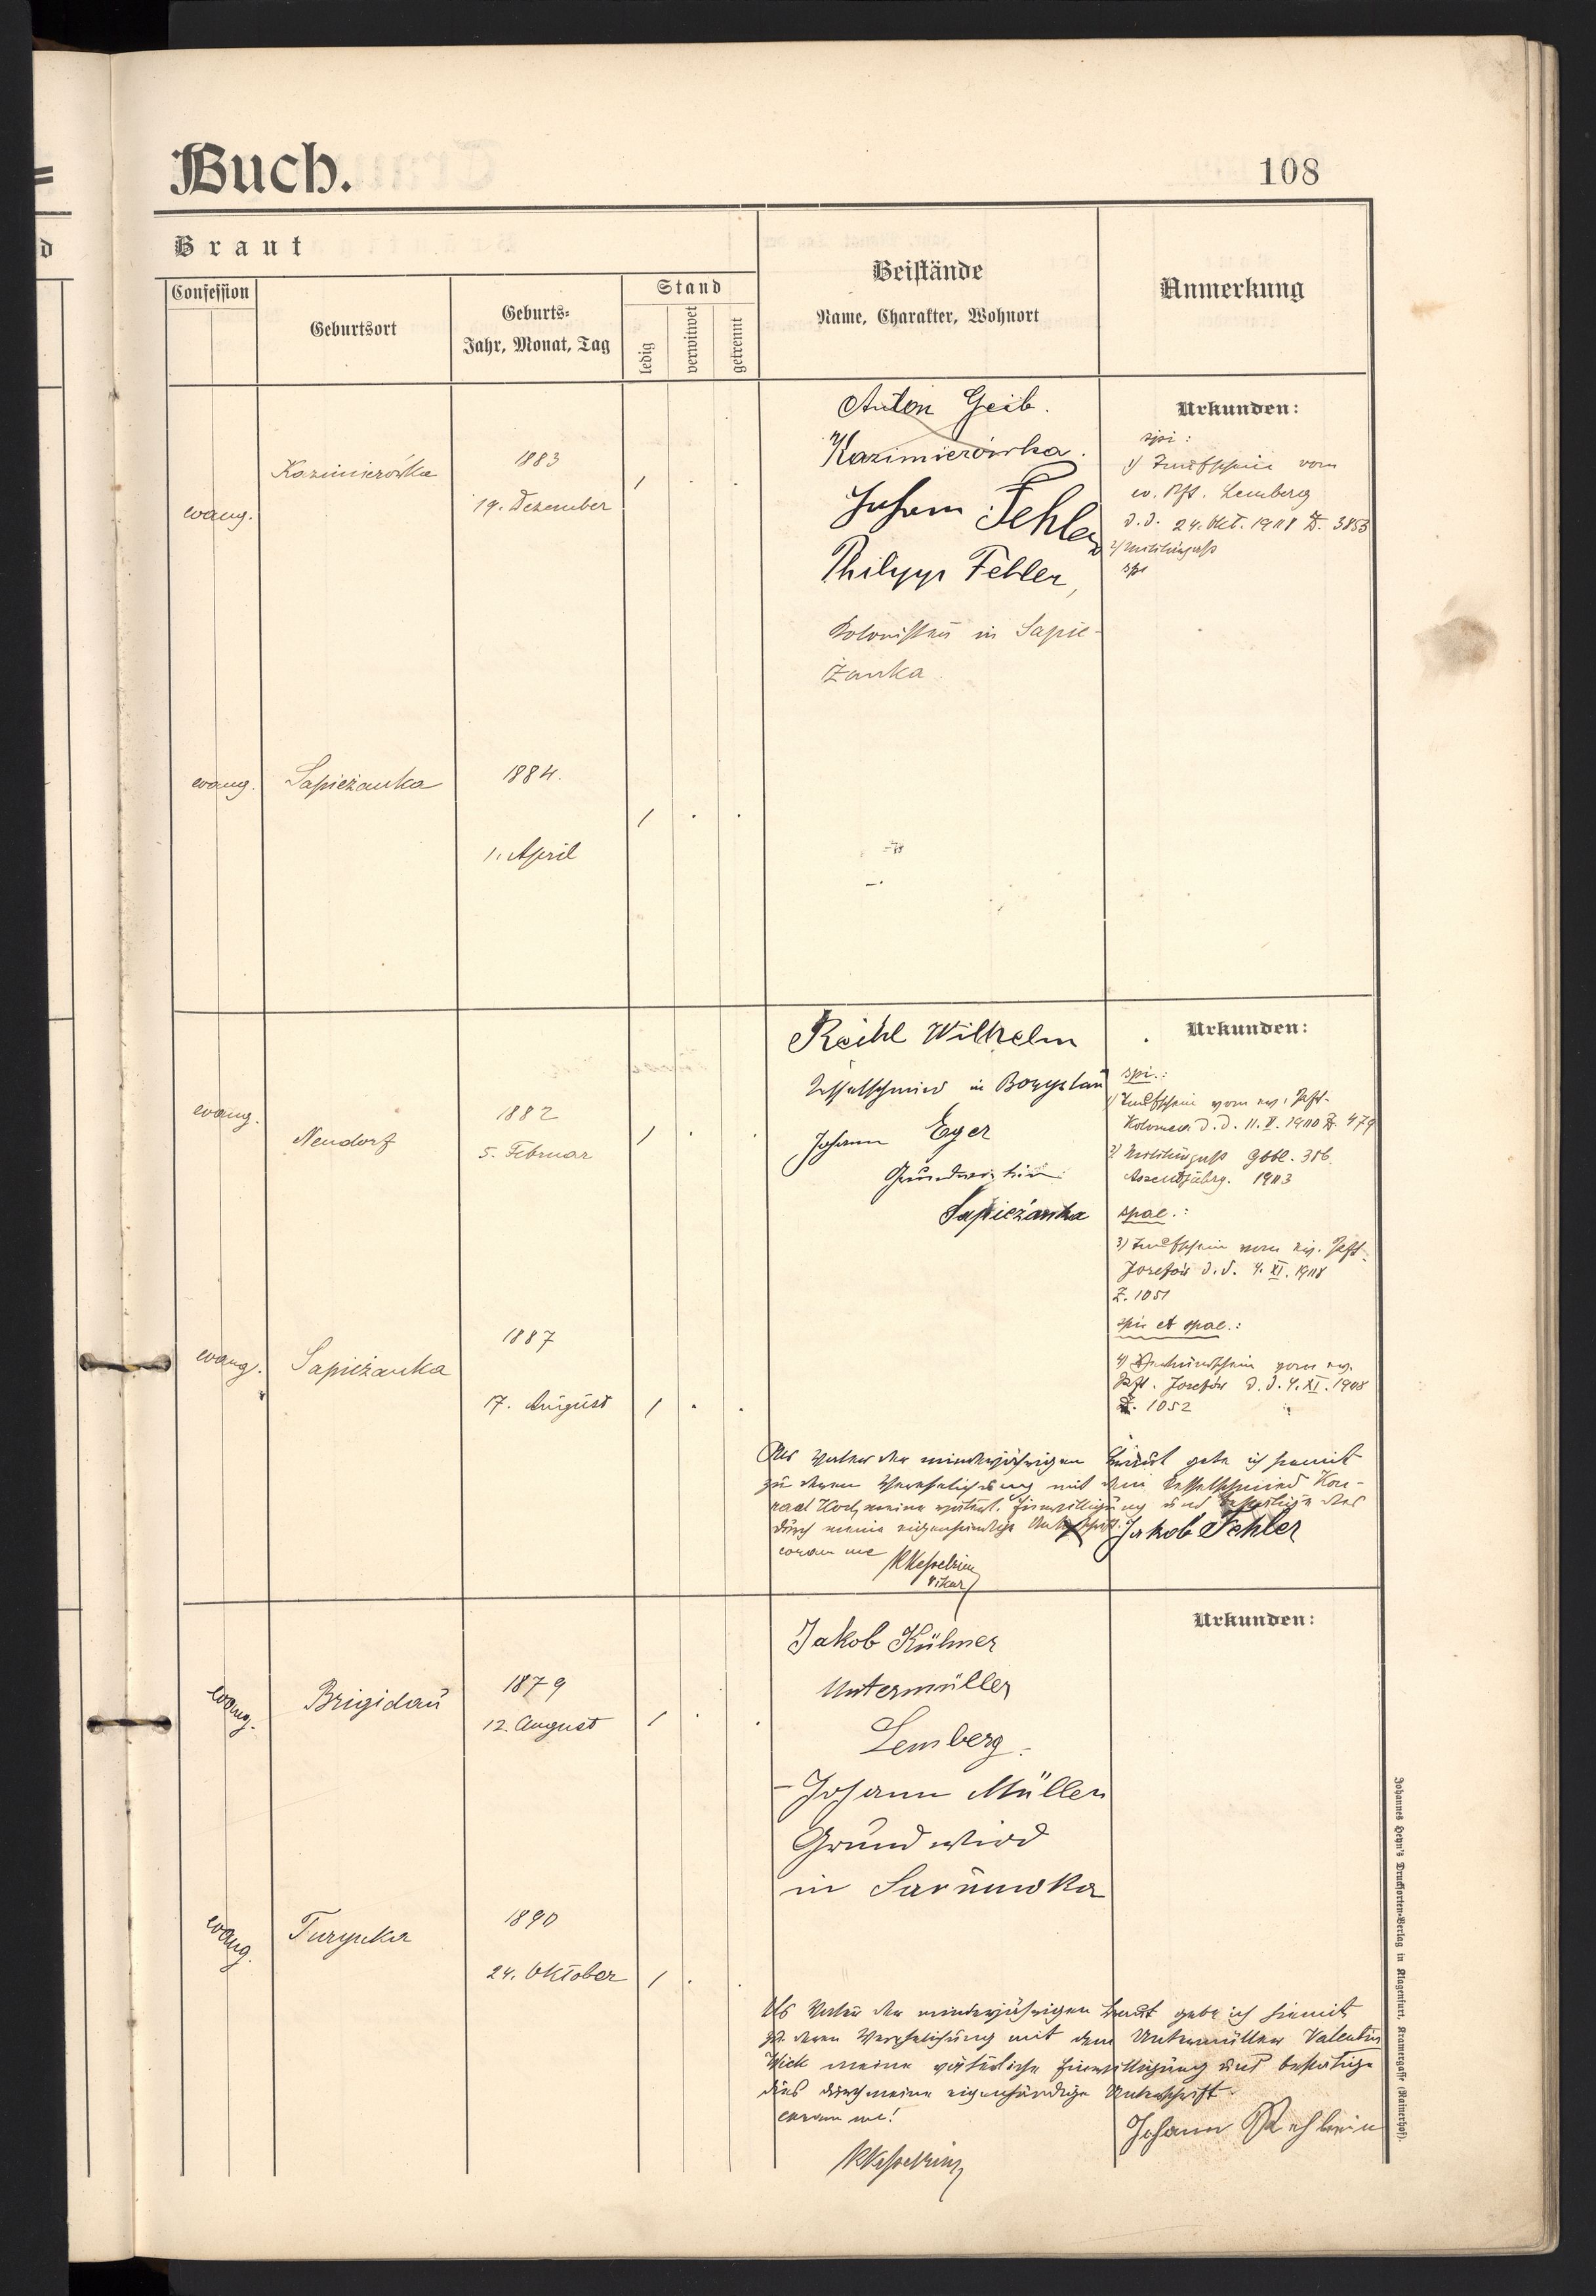 Buch.
108
Braut
Confession
Geburtsort
Geburts-
Jahr, Monat, Tag
Stand
ledig
verwitwet
getrennt
Beistände
Name, Charakter, Wohnort
Anmerkung
evang.
Kazimierówka
1883
19. Dezember
Anton Geib.
Kazimierówka.
Johann Fehler
Philipp Fehler,
Kolonisten in Sapie-
żanka
Urkunden:
spi:
1) Taufschein vom
ev. Pft. Lemberg
d. d. 24. Okt. 1908 Z. 3853
evang.
Sapieżanka
1884.
1. April
evang.
Neudorf
1882
5. Februar
Reihl Wilhelm
Kesselschmied in Boryslau
Johann Eger
Grundwirt in
Sapieżanka
Urkunden:
spi.:
1) Taufschein vom ev. Pft.
Kolomea d. d. 11. V. 1900 Z. 479
Assentjahrg. 1903
spae.:
3) Taufschein vom ev. Pft.
Josefów d. d. 4. XI. 1908
Z. 1051
spi et spae.:
Pft. Josefów d. d. 4. XI. 1908
Z. 1052
evang.
Sapieżanka
1887
17. August
Als Vater der minderjährigen Braut gebe ich hiemit
zu deren Verehelichung mit dem Kesselschmied Kon-
rad Koch meine väterl. Einwilligung und bestätige dies
durch meine eigenhändige Unterschrift.
Jakob Fehler
coram me
RKesselring
Vikar
evang.
Brigidau
1879
12. August
Jakob Kühner
Untermüller
Lemberg.
Johann Müller
Grundwird
in
Urkunden:
evang.
Turynka
1890
24. Oktober
Als Vater der minderjährigen Braut gebe ich hiemit
zu deren Verehelichung mit dem Untermüller Valentin
meine väterliche Einwilligung und bestätige
dies durch meine eigenhändige Unterschrift.
coram me!
Johann
RKesselring
Johannes Heyn's Drucksorten-Verlag in Klagenfurt, Kramergasse (Rainerhof).